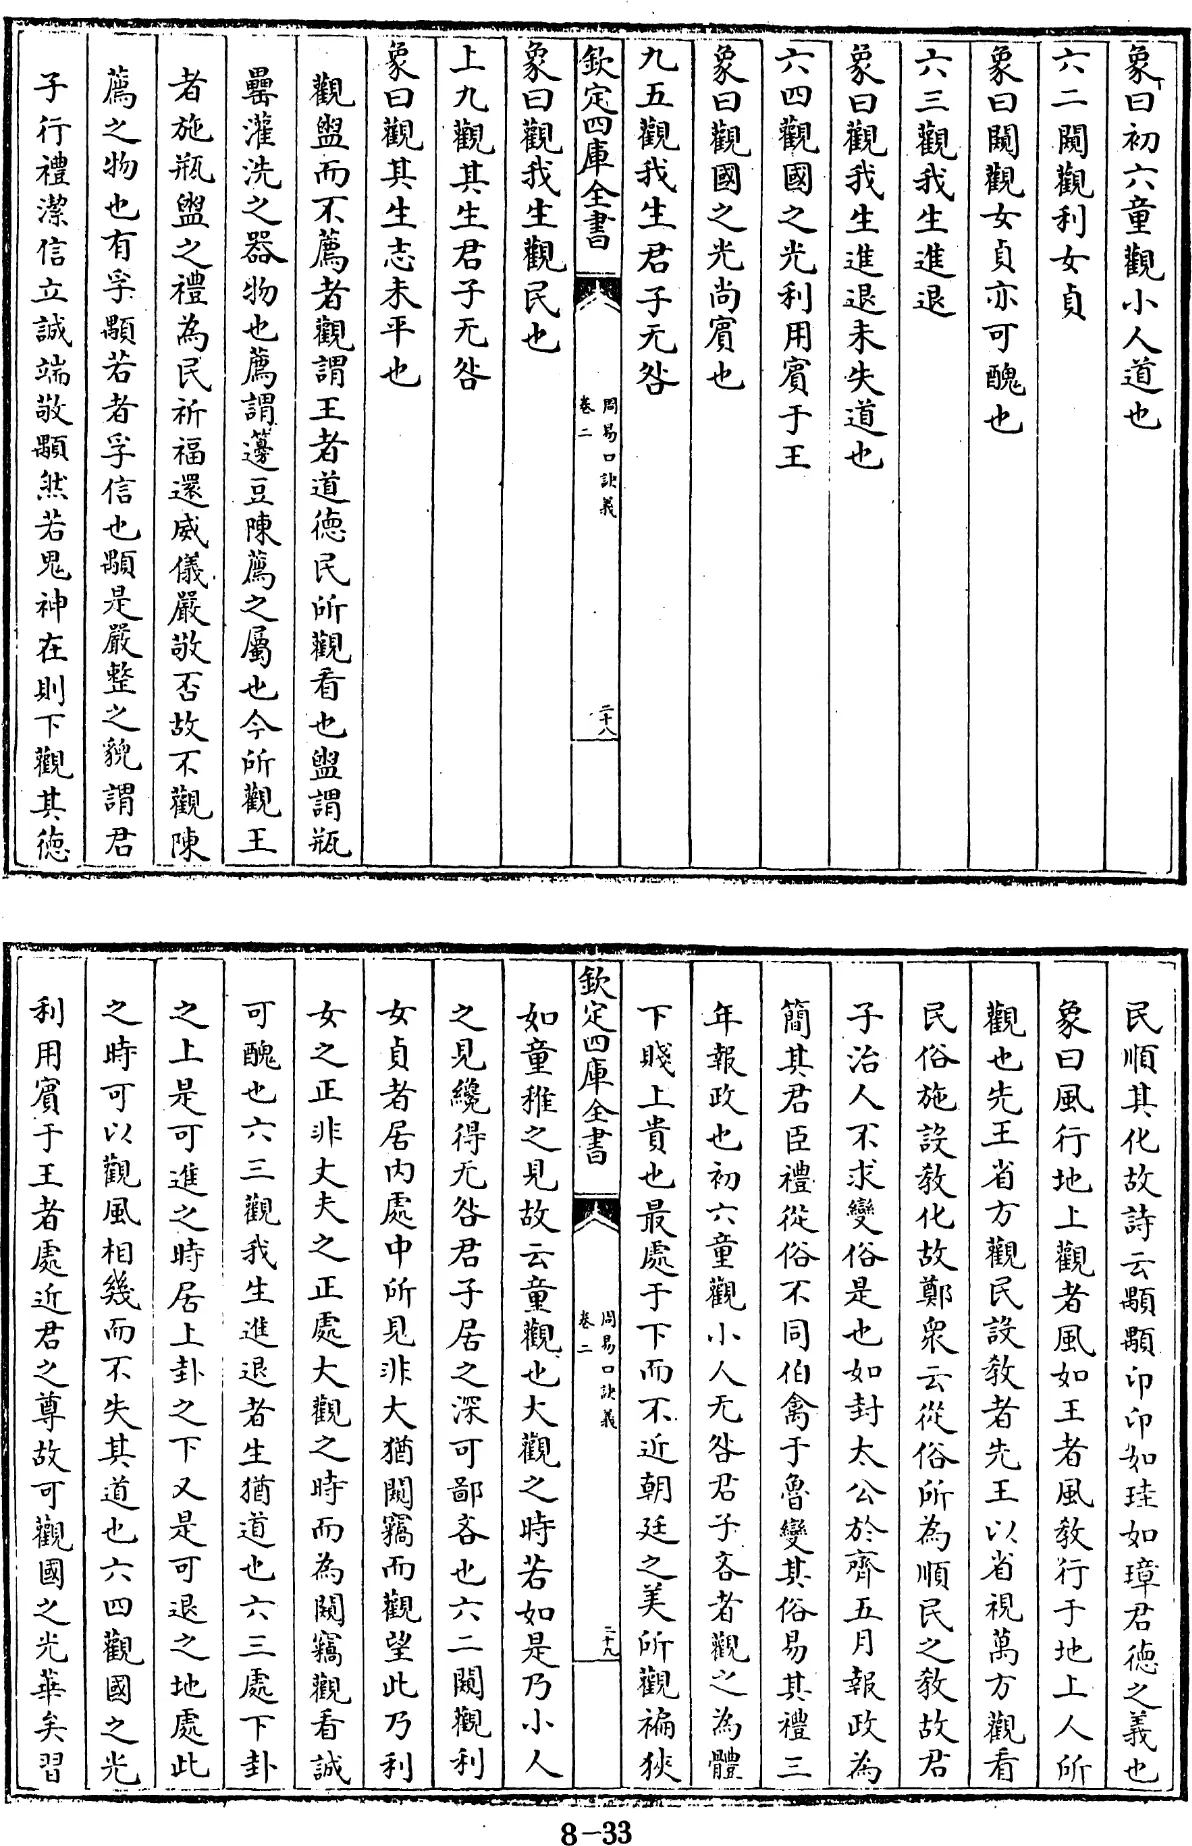 象曰初六童觀小人道也
六二闚觀利女貞
象曰闚觀女貞亦可醜也
六三觀我生進退
象曰觀我生進退未失道也
六四觀國之光利用賓于王
象曰觀國之光尚賓也
九五觀我生君子无咎
欽定四庫全書
周易口訣義
卷二
二十八
象曰觀我生觀民也
上九觀其生君子无咎
象曰觀其生志未平也
觀盥而不薦者觀謂王者道德民所觀看也盥謂瓶
罍灌洗之器物也薦謂籩豆陳薦之屬也今所觀王
者施瓶盥之禮為民祈福還威儀嚴敬否故不觀陳
薦之物也有孚顒若者孚信也顒是嚴整之貌謂君
子行禮潔信立誠端敬顒然若鬼神在則下觀其德
民順其化故詩云顒顒卬卬如珪如璋君德之義也
象曰風行地上觀者風如王者風教行于地上人所
觀也先王省方觀民設教者先王以省視萬方觀看
民俗施設教化故鄭衆云從俗所為順民之教故君
子治人不求變俗是也如封太公於齊五月報政為
簡其君臣禮從俗不同伯禽于魯變其俗易其禮三
年報政也初六童觀小人无咎君子吝者觀之為體
下賤上貴也最處于下而不近朝廷之美所觀褊狹
欽定四庫全書
周易口訣義
卷二
二十九
如童稚之見故云童觀也大觀之時若如是乃小人
之見纔得无咎君子居之深可鄙吝也六二闚觀利
女貞者居內處中所見非大猶闚竊而觀望此乃利
女之正非丈夫之正處大觀之時而為闚竊觀看誠
可醜也六三觀我生進退者生猶道也六三處下卦
之上是可進之時居上卦之下又是可退之地處此
之時可以觀風相幾而不失其道也六四觀國之光
利用賓于王者處近君之尊故可觀國之光華矣習
8-33